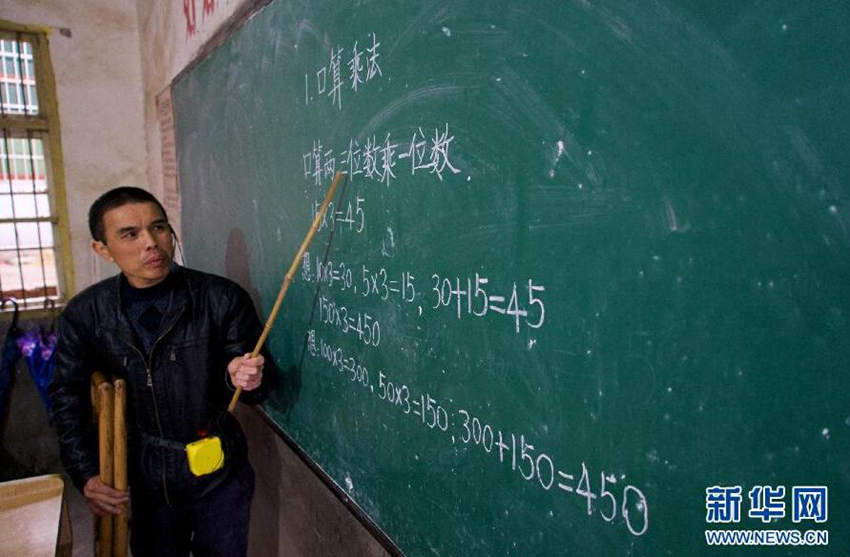 1.口算乘法
口算两三位数乘一位数
15×3=45
想:10×3=30,5×3=15;30+15=45
150×3=450
想:100×3=300,50×3=150;300+150=450
新华网
WWW.NEWS.CN